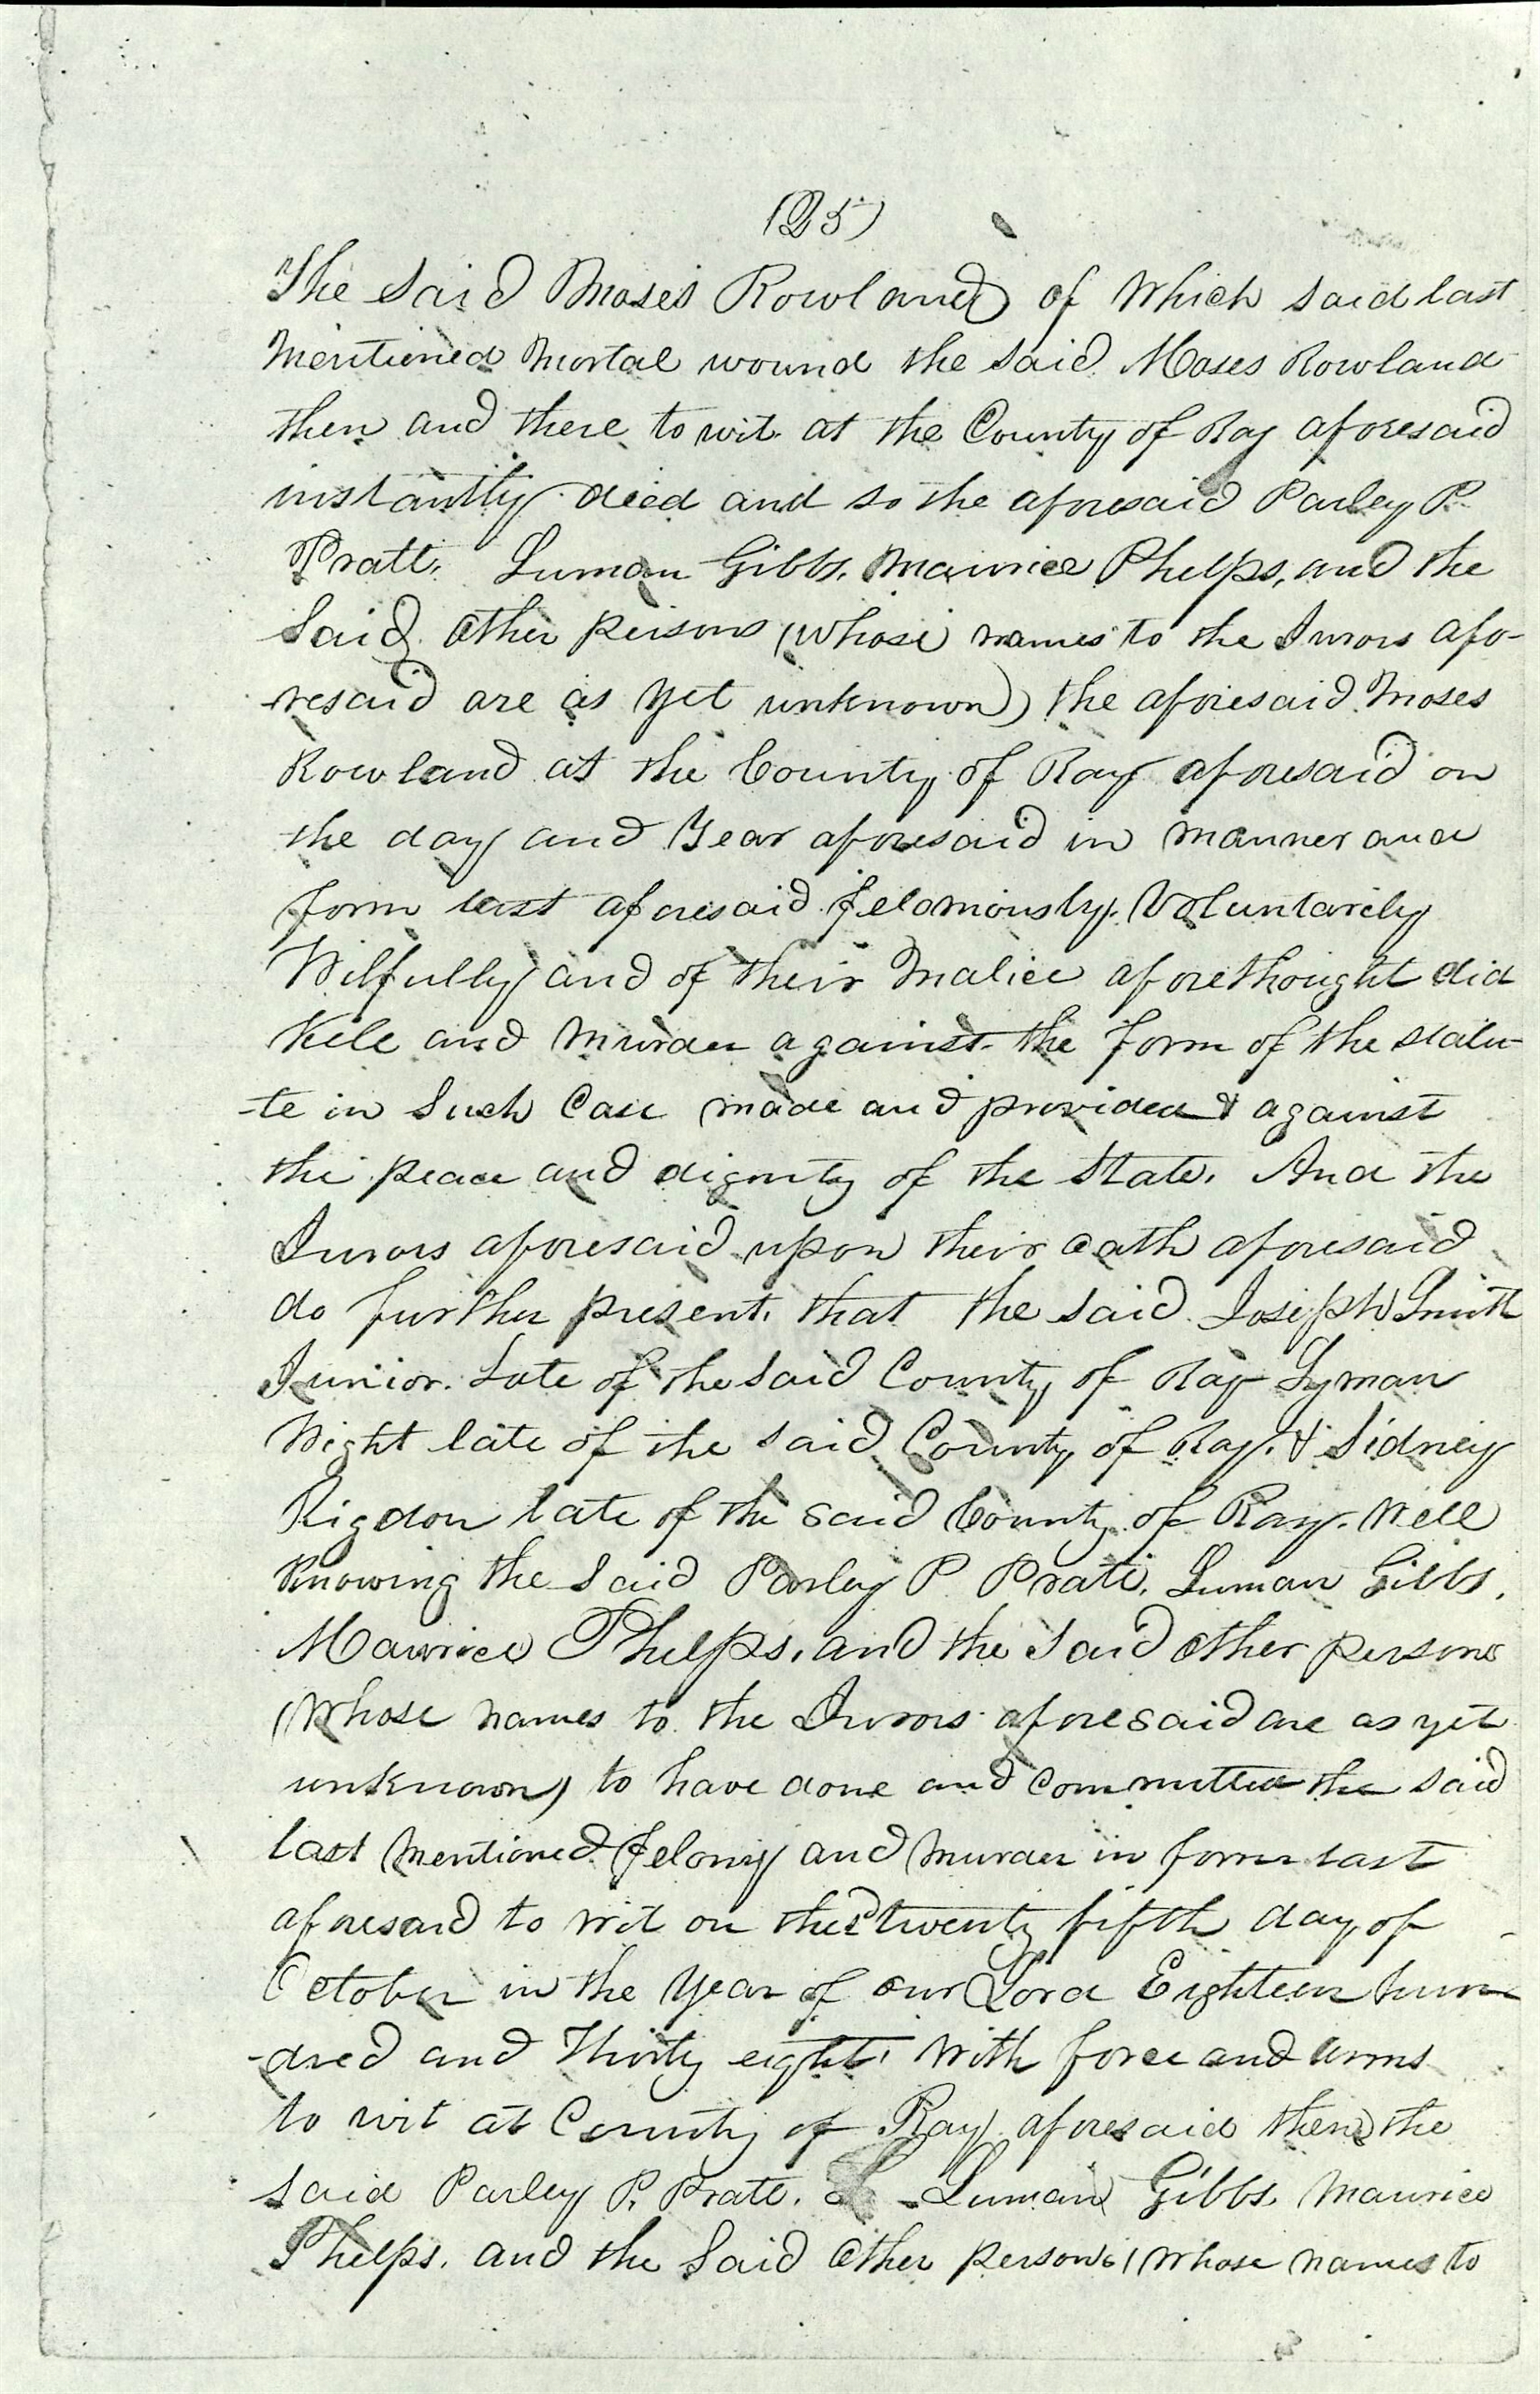 (25)
The Said Moses Rowland of Which said last
Mentioned Mortal wound the said Moses Rowland
then and there to wit at the County of Ray aforesaid
instantly died and so the aforesaid Parley P.
Pratt, Luman Gibbs, Maurice Phelps, and the
Said other persons (whose names to the Jurors afo-
-resaid are as yet unknown) the aforesaid Moses
Rowland at the County of Ray aforesaid on
the day and Year aforesaid in manner and
form last aforesaid feloniously, Voluntarily
Wilfully and of their Malice aforethought did
Kill and Murder against the form of the statu-
-te in Such Case made and provided & against
the peace and dignity of the State. And the
Jurors aforesaid upon their oath aforesaid
do further present, that the said Joseph Smith
Junior. Late of the said County of Ray Lyman
Wight late of the said County of Ray. & Sidney
Rigdon late of the said County of Ray. Well
Knowing the Said Parley P Pratt, Luman Gibbs,
Maurice Phelps, and the said other persons
(Whose names to the Jurors aforesaid are as yet
unknown) to have done and committed the said
last Mentioned felony and Murder in form last
aforesaid to wit on the twenty fifth day of
October in the Year of our Lord Eighteen hun-
-dred and Thirty eight, With force and arms
to wit at County of Ray aforesaid then the
said Parley P. Pratt. Luman Gibbs, Maurice
Phelps. and the Said Other persons (Whose names to